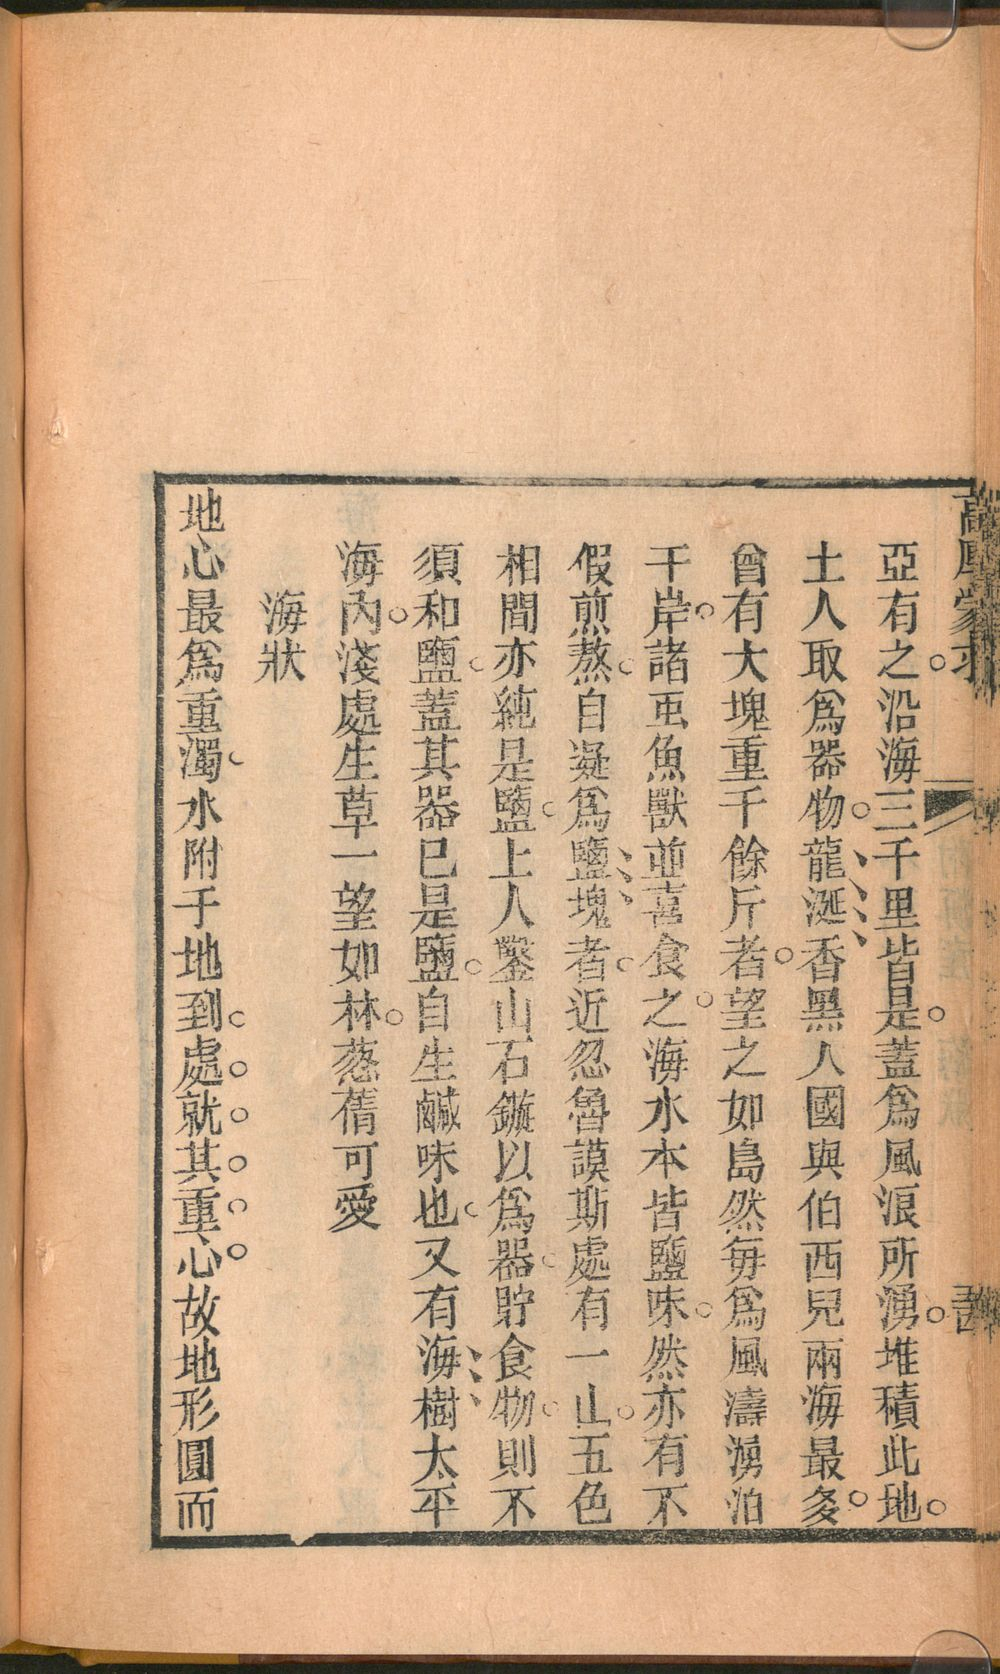 亞有之沿海三千里皆是蓋爲風浪所湧堆積此地
土人取爲器物龍涎香黑人國與伯西兒兩海最多
曾有大塊重千餘斤者望之如島然每爲風濤湧泊
于岸諸虫魚獸並喜食之海水本皆鹽味然亦有不
假煎熬自凝爲鹽塊者近忽魯謨斯處有一山五色
相間亦純是鹽土人鑿山石鏇以爲器貯食物則不
須和鹽蓋其器已是鹽自生鹹味也又有海樹太平
海內淺處生草一望如林蔥蒨可愛
海狀
地心最爲重濁水附于地到處就其重心故地形圓而